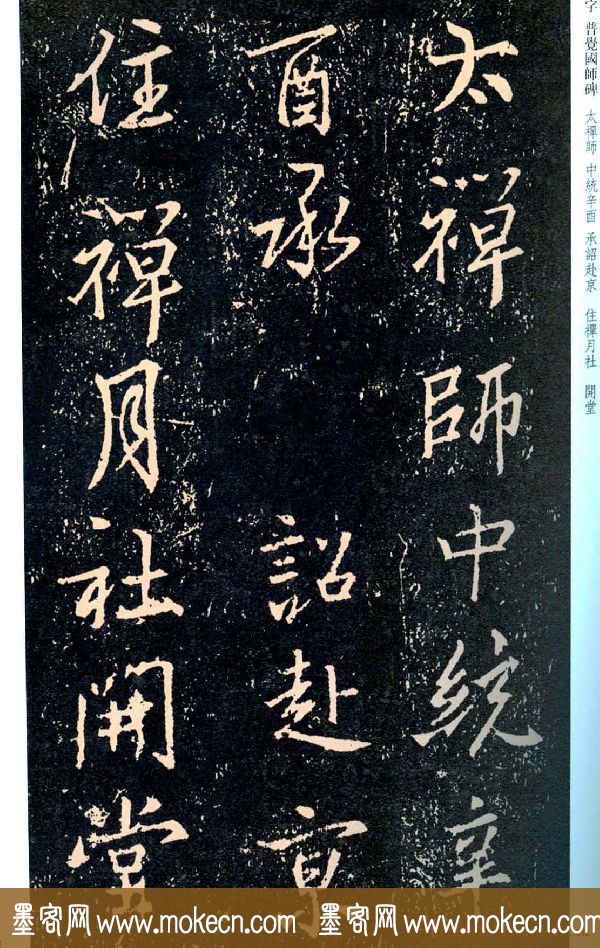 字 普覺國師碑 太禪師 中統辛酉 承詔赴京 住禪月社 開堂
太禪師中統辛
酉承 詔赴京
住禪月社開堂
墨客网 www.mokecn.com 墨客网 www.mokecn.com